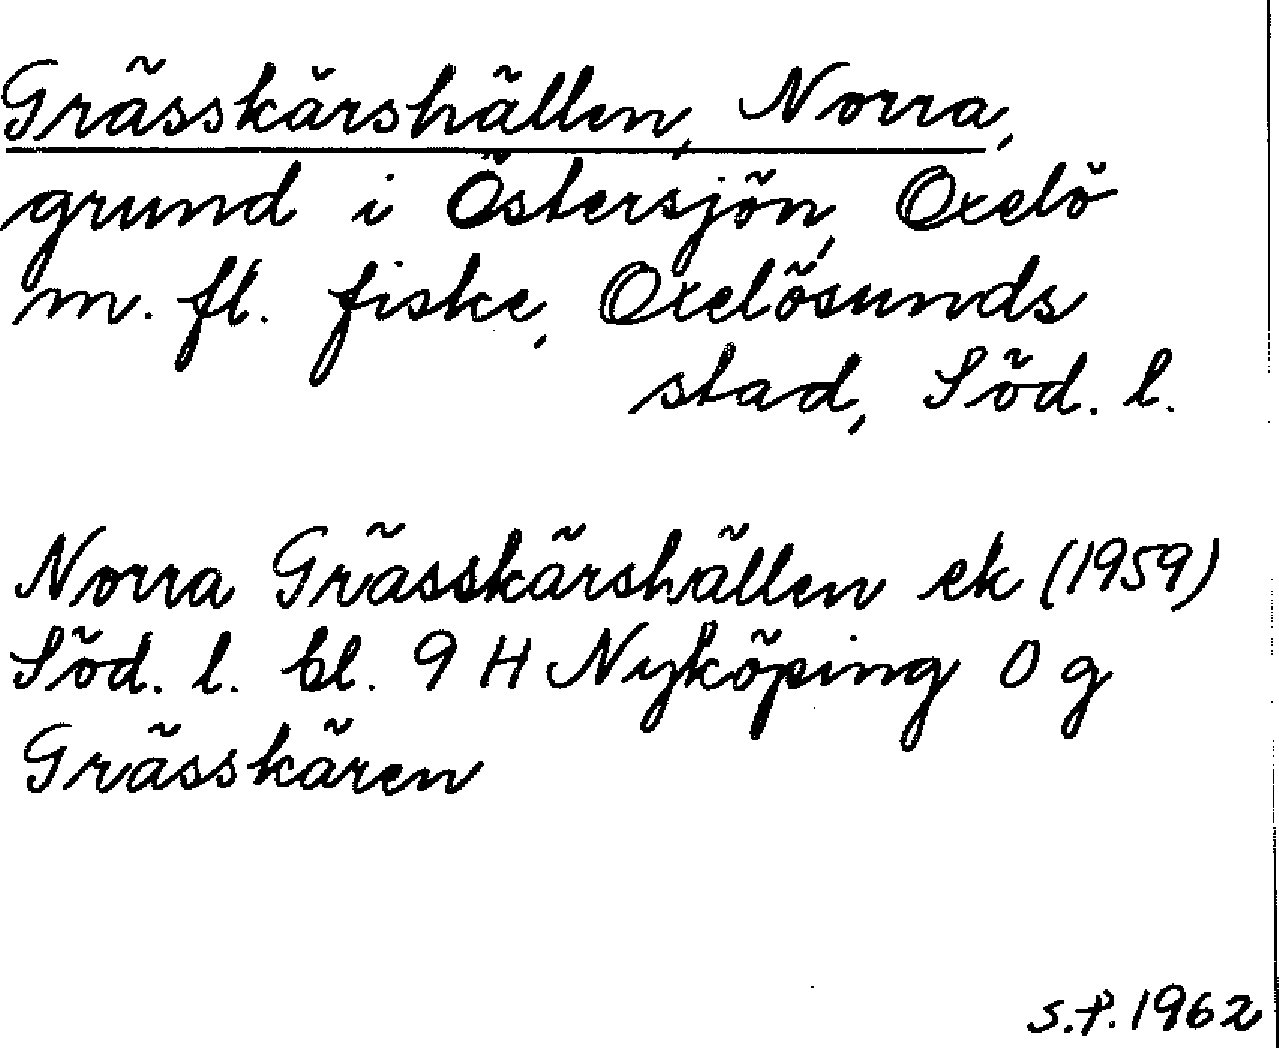 Grässkärshällen, Norra,
grund i Östersjön, Oxelö
m. fl. fiske, Oxelösunds
stad, Söd. l.
Norra Grässkärshällen ek (1959)
Söd. l. bl. 9 H Nyköping 0 g
Grässkären
S.P. 1962